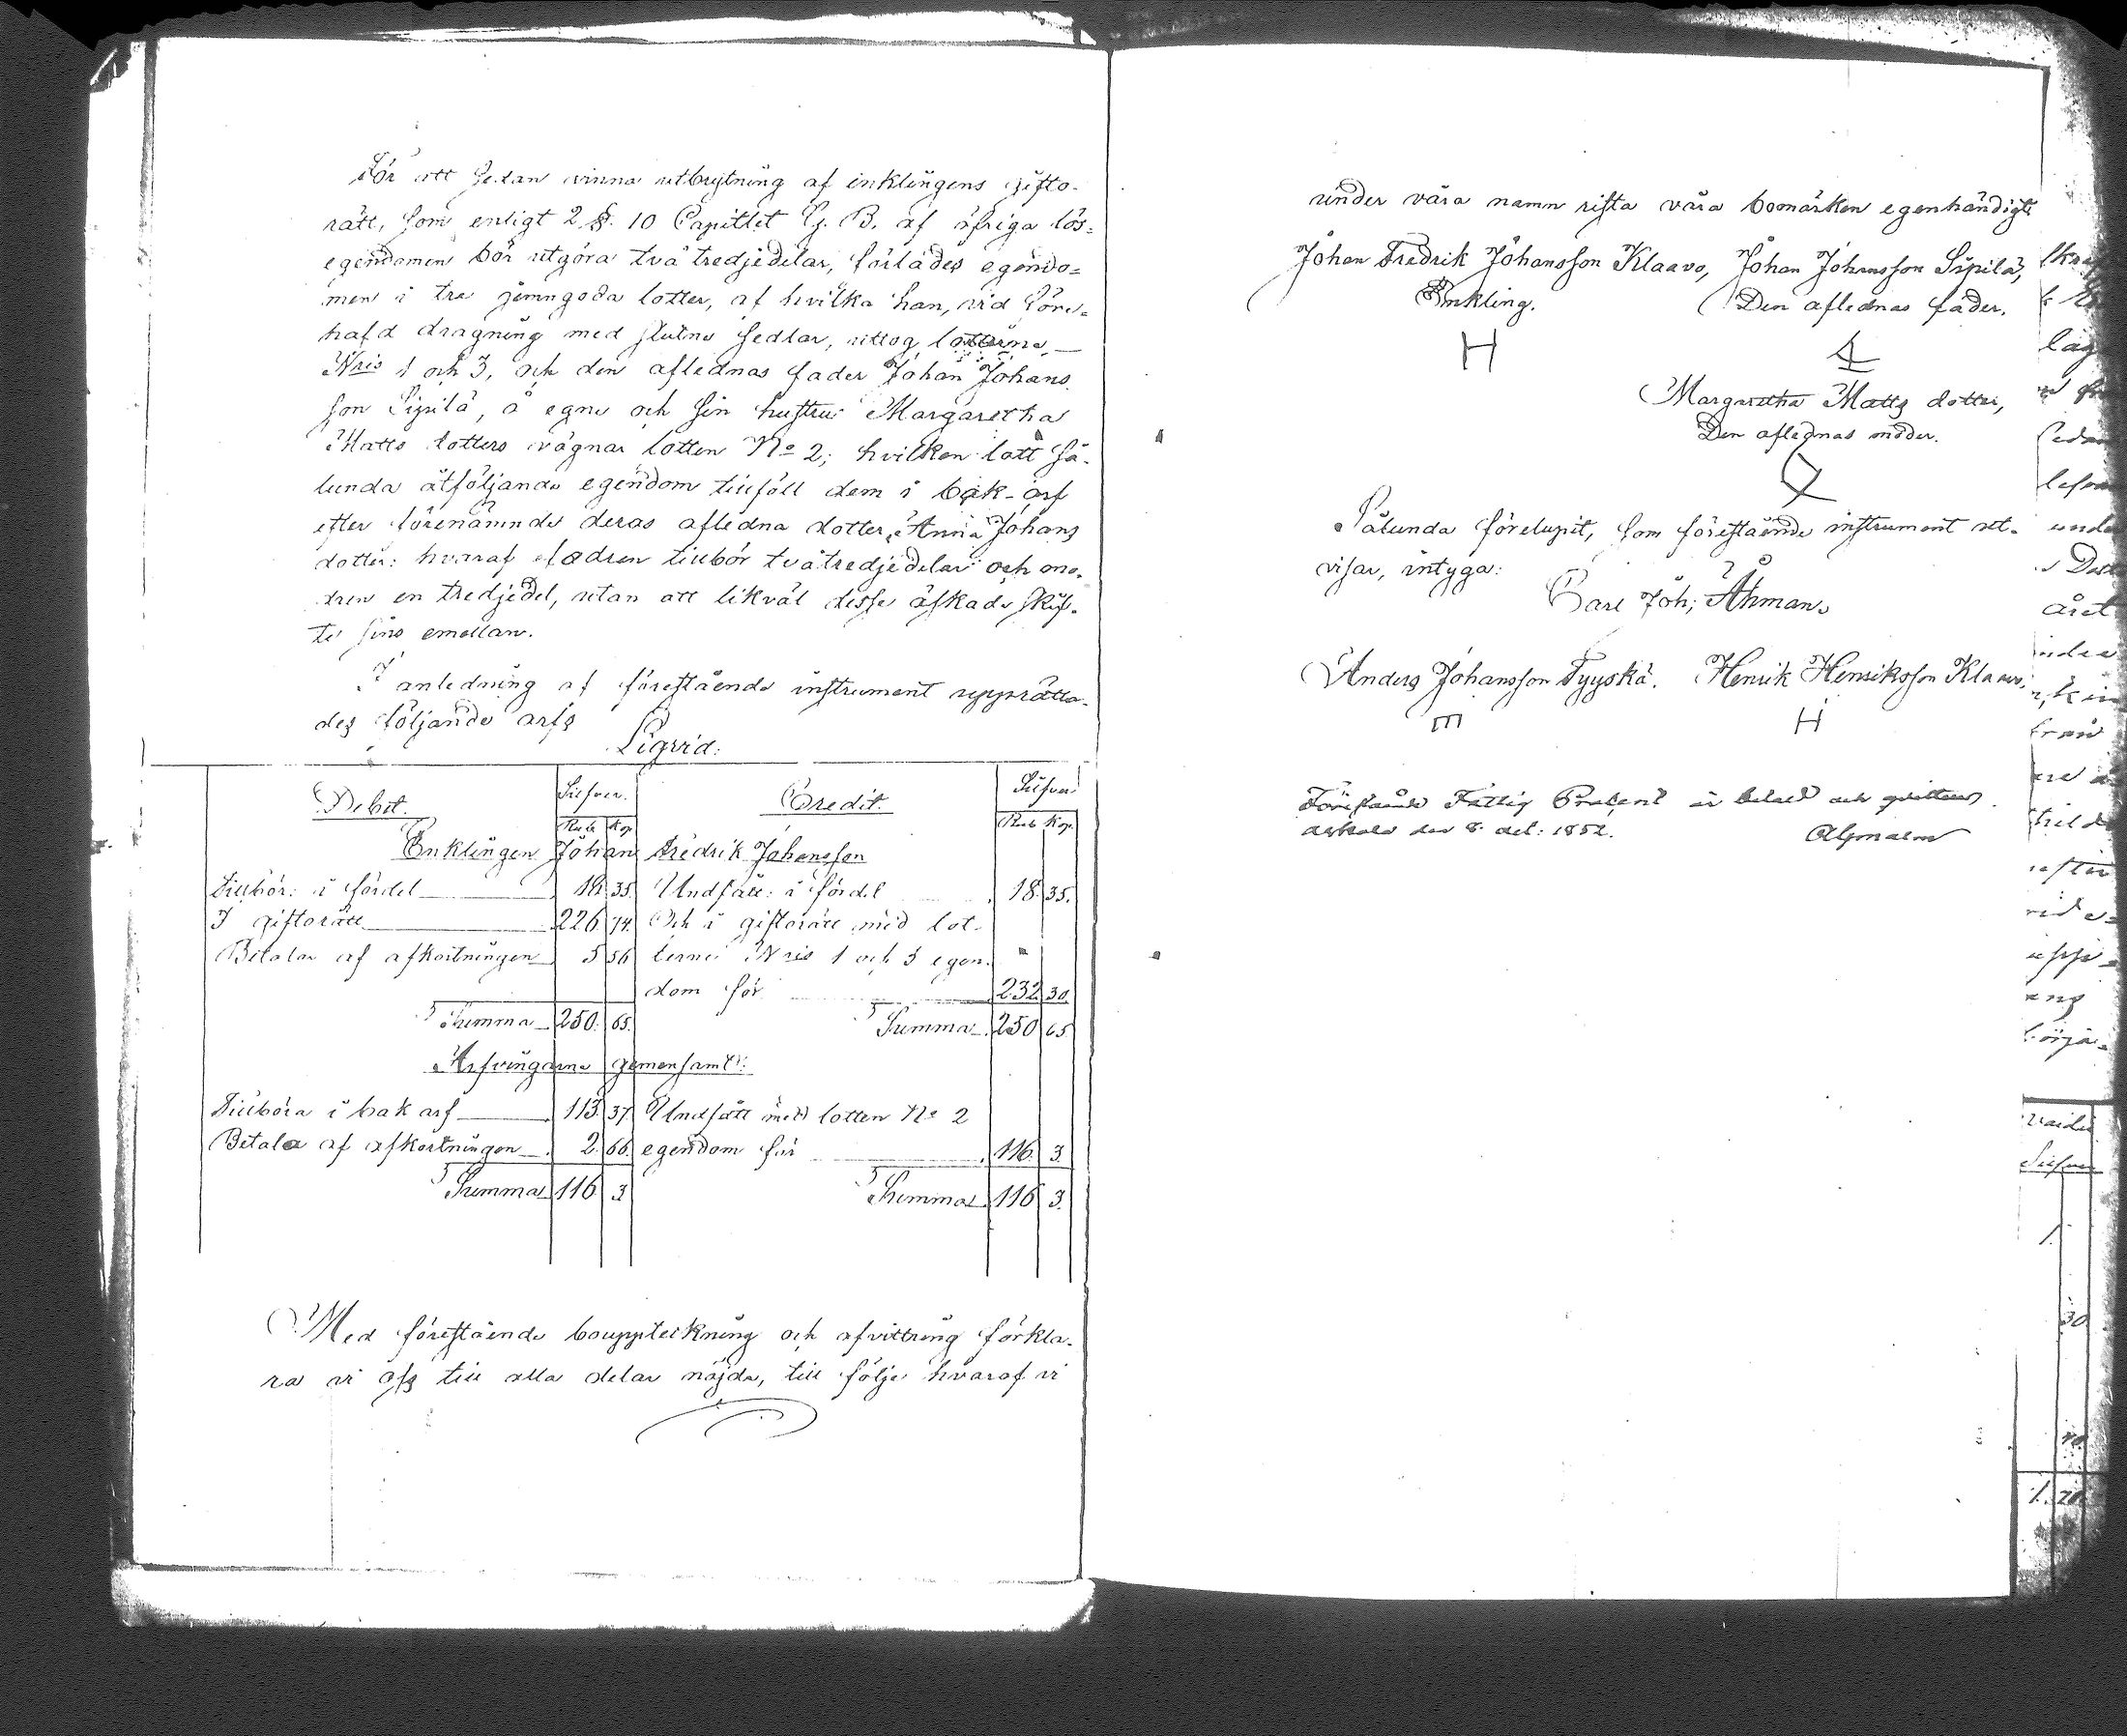 För att sedan vinna utbrytning af enklingens gifto-
rätt, som enligt 2 §. 10 Capitlet G. B. af öfriga lös-
egendomen bör utgöra två tredjedelar, förlades egendo-
men i tre jemngoda lotter, af hvilka han, vid före-
hafd dragning med slutna sedlar, uttog lotterne
Nris 1 och 3, och den aflednas fader Johan Johans
son Sipilä, å egne och sin hustru Margaretha
Matts dotters vägnar lotten No 2; hvilken lott så-
lunda åtföljande egendom tillföll dem i bak-arf
efter förenämnde deras afledna dotter, Anna Johans
dotter: hvaraf fadren tillbör två tredjedelar och mo-
dren en tredjedel, utan att likväl desse äskade skif-
te sins emellan.
I anledning af föreståënde instrument upprätta-
des följande arfs
Liqvid:
Debet. Silfver. Credit. Silfver
Rub Kop. Rub Kop.
Enklingen Johan Fredrik Johansson
Tillbör: i fördel 18. 35. Undfått: i fördel 18. 35.
I giftorätt 226. 74. Och i giftorätt med lot-
Betalar af afkortningen 5 56 terne Nris 1 och 3 egen-
dom för 232. 30.
Summa 250. 65. Summa 250 65.
Arfvingarne gemensamt:
Tillböra i bak arf 113. 37. Undfått med lotten No 2
Betala af afkortningen 2. 66. egendom för 116. 3.
Summa 116 3 Summa 116 3.
Med förestående bouppteckning och afvittring förkla-
ra vi oss till alla delar nöjda, till följe hvaraf vi
under våra namn rista våra bomärken egenhändigt
Johan Fredrik Johansson Klaavo, Johan Johansson Sipilä,
Enkling. Den aflednas fader.
Margaretha Matts dotter,
Den aflednas moder.
Sålunda förelupit, som förestående instrument ut-
visar, intyga:
Carl Joh; Åhman.
Anders Johansson Tyyskä. Henrik Henriksson Klaavo.
Förestående Fattig Procent är betald och quitteras
den 8. 1852. Alfmalm